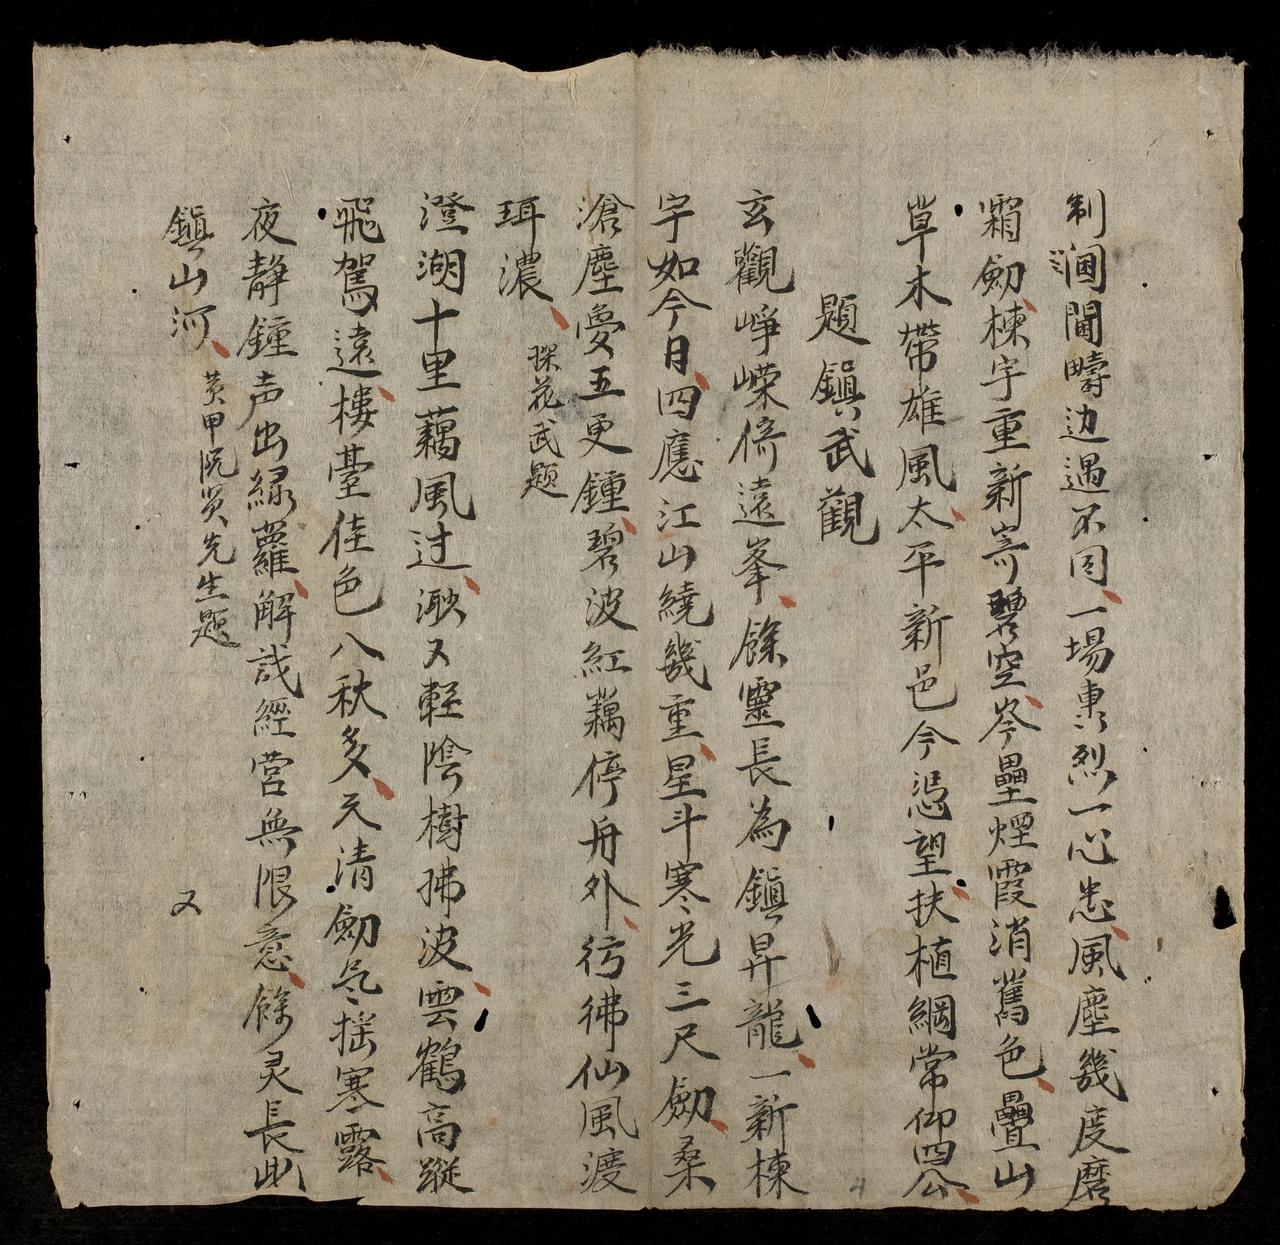 制涸閫疇边遇不同一場惠烈一心忠風塵幾度磨
霜劍棟宇重新寄碧空岑壘煙霞消舊色疊山
草木帶雄風太平新邑今憑望扶植綱常仰四公
題鎮武觀
玄觀崢嶸倚遠峯餘靈長為鎮昇龍一新棟
宇如今日四應江山繞幾重星斗寒光三尺劍桑
滄塵夢五更鍾碧波紅藕停舟外彷彿仙風渡
珥濃
探花武題
澄湖十里藕風过
又輕陰樹拂波雲鶴高蹤
飛駕遠樓臺佳色八秋多天清劍氣摇寒露
夜静鐘声出绿蘿解識經营無限意餘灵長此
鎮山河
黄甲阮賢先生题
又